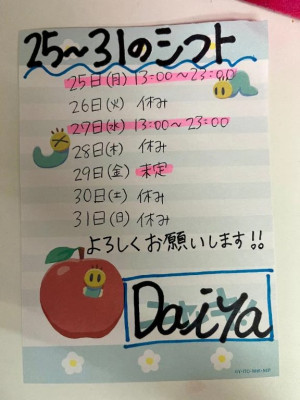 25〜31のシフト
25日(月) 13:00〜23:00
26日(火) 休み
27日(水) 13:00〜23:00
28日(木) 休み
29日(金) 未定
30日(土) 休み
31日(日) 休み
よろしくお願いします!!
Daiya